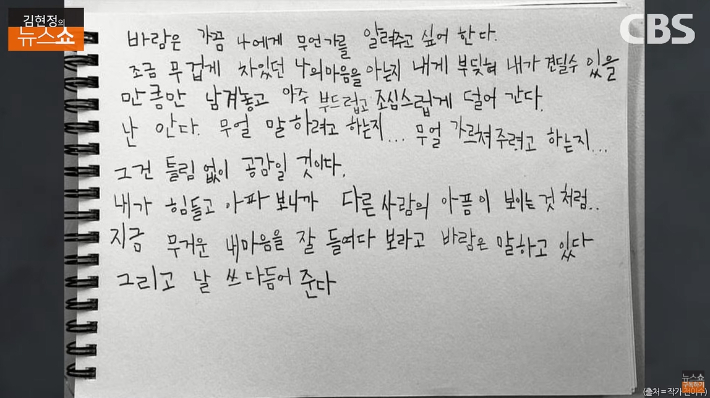 김현정의
뉴스쇼
CBS
바람은 가끔 나에게 무언가를 알려주고 싶어 한다.
조금 무겁게 차있던 나의마음을 아는지 내게 부딪혀 내가 견딜수 있을
만큼만 남겨놓고 아주 부드럽고 조심스럽게 덜어 간다.
난 안다. 무얼 말하려고 하는지... 무얼 가르쳐주려고 하는지...
그건 틀림없이 공감일 것이다.
내가 힘들고 아파 보니까 다른 사람의 아픔이 보이는 것 처럼..
지금 무거운 내마음을 잘 들여다 보라고 바람은 말하고 있다
그리고 날 쓰다듬어 준다
뉴스쇼
구독하기
(출처 = 작가 전이수)